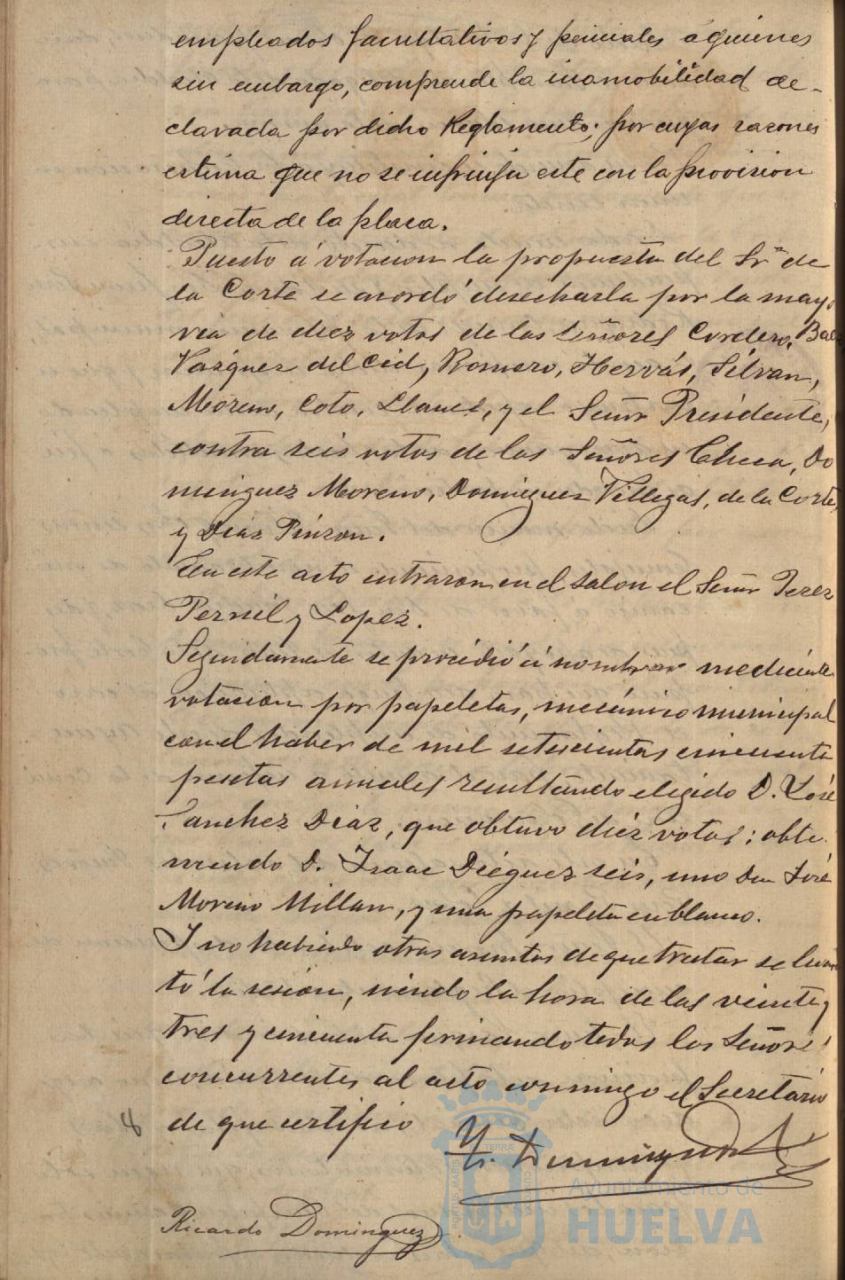 empleados facultativos y periciales á quienes
sin embargo, comprende la inamobilidad de-
clarada por dicho Reglamento; por cuyas razones
estima que no se infrinja este con la provision
directa de la plaza.
Puesto á votacion la propuesta del Sr. de
la Corte se acordó desecharla por la mayo
ria de diez votos de los Señores Cordero,
Vazquez del Cid, Romero, Hervás, Silvan,
Moreno, Coto, Llanes, y el Señor Presidente,
contra seis votos de los Señores Checa, Do
minguez Moreno, Dominguez Villegas, de la Corte,
y Diaz Pinzon.
En este acto entraron en el salon el Señor Perez
Pernil y Lopez.
Seguidamente se procedió á nombrar mediante
votacion por papeletas, mecánico municipal
con el haber de mil setescientas cincuenta
pesetas anuales resultando elegido D. José
Sanchez Diaz, que obtuvo diez votos; obte
niendo D. Isaac Diéguez seis, uno Don José
Moreno Millan, y una papeleta en blanco.
Y no habiendo otros asuntos de que tratar se levan
tó la sesion, siendo la hora de las veinte y
tres y cincuenta firmando todos los Señores
concurrentes al acto conmigo el Secretário
de que certifico
8
Ricardo Dominguez
Ayuntamiento de
HUELVA